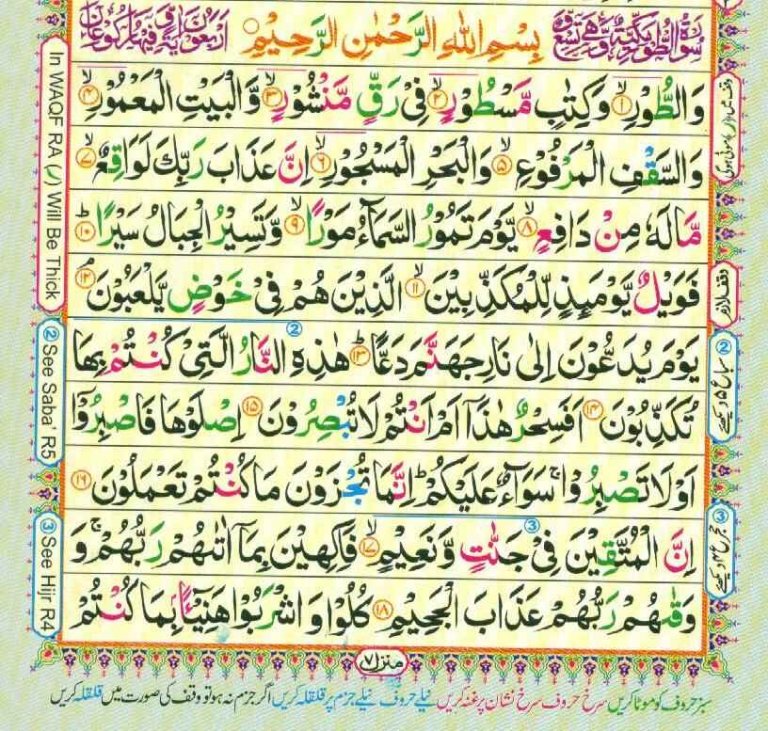 سُوْرَةُ الطُّوْرِ مَكِّيَّةٌ وَّهِىَ تِسْعٌ
بِسْمِ اللهِ الرَّحْمٰنِ الرَّحِيْمِ
وَّاَرْبَعُوْنَ اٰيَةً وَّفِيْهَا رُكُوْعَانِ
وَالطُّوْرِ ۙ﴿۱﴾ وَكِتٰبٍ مَّسْطُوْرٍ ۙ﴿۲﴾ فِىْ رَقٍّ مَّنْشُوْرٍ ۙ﴿۳﴾ وَّالْبَيْتِ الْمَعْمُوْرِ ۙ﴿۴﴾
وَالسَّقْفِ الْمَرْفُوْعِ ۙ﴿۵﴾ وَالْبَحْرِ الْمَسْجُوْرِ ۙ﴿۶﴾ اِنَّ عَذَابَ رَبِّكَ لَوَاقِعٌ ۙ﴿۷﴾
مَّا لَهٗ مِنْ دَافِعٍ ۙ﴿۸﴾ يَّوْمَ تَمُوْرُ السَّمَآءُ مَوْرًا ۙ﴿۹﴾ وَّتَسِيْرُ الْجِبَالُ سَيْرًا ؕ﴿۱۰﴾
فَوَيْلٌ يَّوْمَئِذٍ لِّلْمُكَذِّبِيْنَ ۙ﴿۱۱﴾ الَّذِيْنَ هُمْ فِىْ خَوْضٍ يَّلْعَبُوْنَ ۘ﴿۱۲﴾
يَوْمَ يُدَعُّوْنَ اِلٰى نَارِ جَهَنَّمَ دَعًّا ؕ﴿۱۳﴾ هٰذِهِ النَّارُ الَّتِىْ كُنْتُمْ بِهَا
تُكَذِّبُوْنَ ﴿۱۴﴾ اَفَسِحْرٌ هٰذَاۤ اَمْ اَنْتُمْ لَا تُبْصِرُوْنَ ﴿۱۵﴾ اِصْلَوْهَا فَاصْبِرُوْۤا
اَوْ لَا تَصْبِرُوْا ۚ سَوَآءٌ عَلَيْكُمْ ؕ اِنَّمَا تُجْزَوْنَ مَا كُنْتُمْ تَعْمَلُوْنَ ﴿۱۶﴾
اِنَّ الْمُتَّقِيْنَ فِىْ جَنّٰتٍ وَّنَعِيْمٍ ۙ﴿۱۷﴾ فٰكِهِيْنَ بِمَاۤ اٰتٰىهُمْ رَبُّهُمْ ۚ وَ
وَقٰىهُمْ رَبُّهُمْ عَذَابَ الْجَحِيْمِ ﴿۱۸﴾ كُلُوْا وَاشْرَبُوْا هَنِيْٓـئًۢا بِمَا كُنْتُمْ
منزل ۷
سبز حروف کو موٹا کریں سرخ حروف سرخ نشان پر غنہ کریں نیلے حروف نیلے جزم پر قلقلہ کریں اگر جزم نہ ہو تو وقف کی صورت میں قلقلہ کریں
In WAQF RA (ر) Will Be Thick
② See Saba' R5
③ See Hijr R4
② سبا ع ۵ دیکھئے
③ حجر ع ۴ دیکھئے
وقف لازم